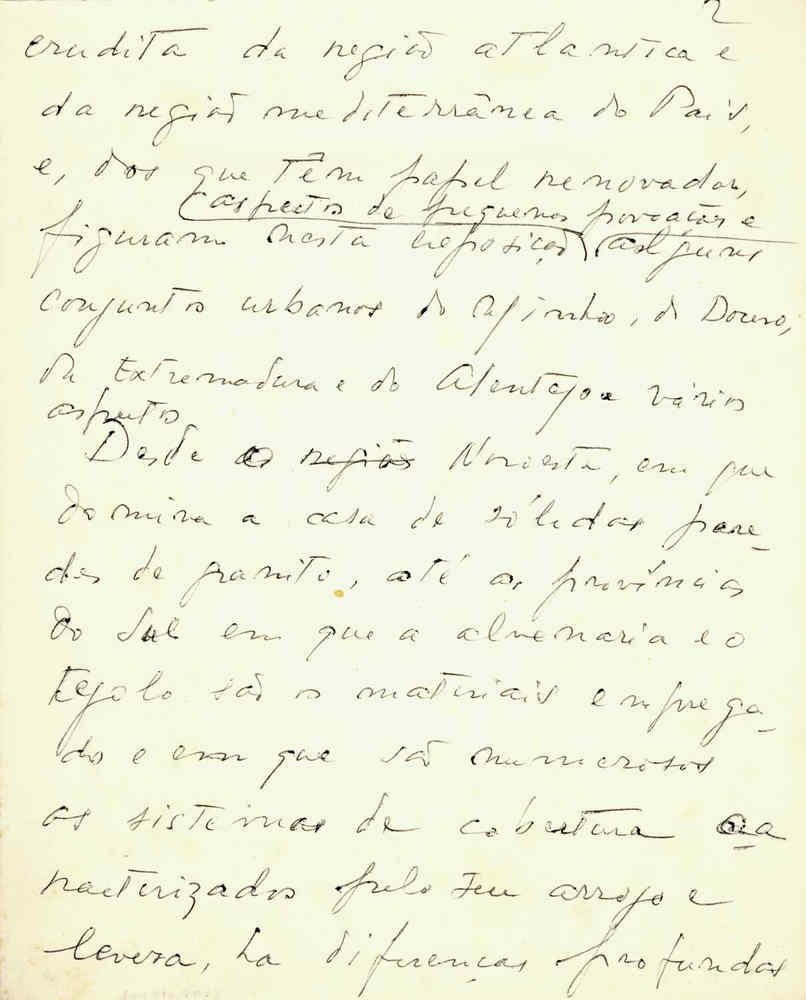 2
erudita da região atlantica e
da região mediterrânea do País,
e, dos que têm papel renovador,
aspectos de pequenas povoações e
figuram nesta exposição alguns
conjuntos urbanos do Minho, do Douro,
da Extremadura e do Alentejo e vários
aspectos
Desde as regiões Noroeste, em que
domina a casa de sólidas pare-
des de granito, até às províncias
do Sul em que a alvenaria e o
tejolo são os materiais emprega-
dos e em que são numerosos
os sistemas de cobertura ca
racterizados pelo seu arrojo e
leveza, ha diferenças profundas